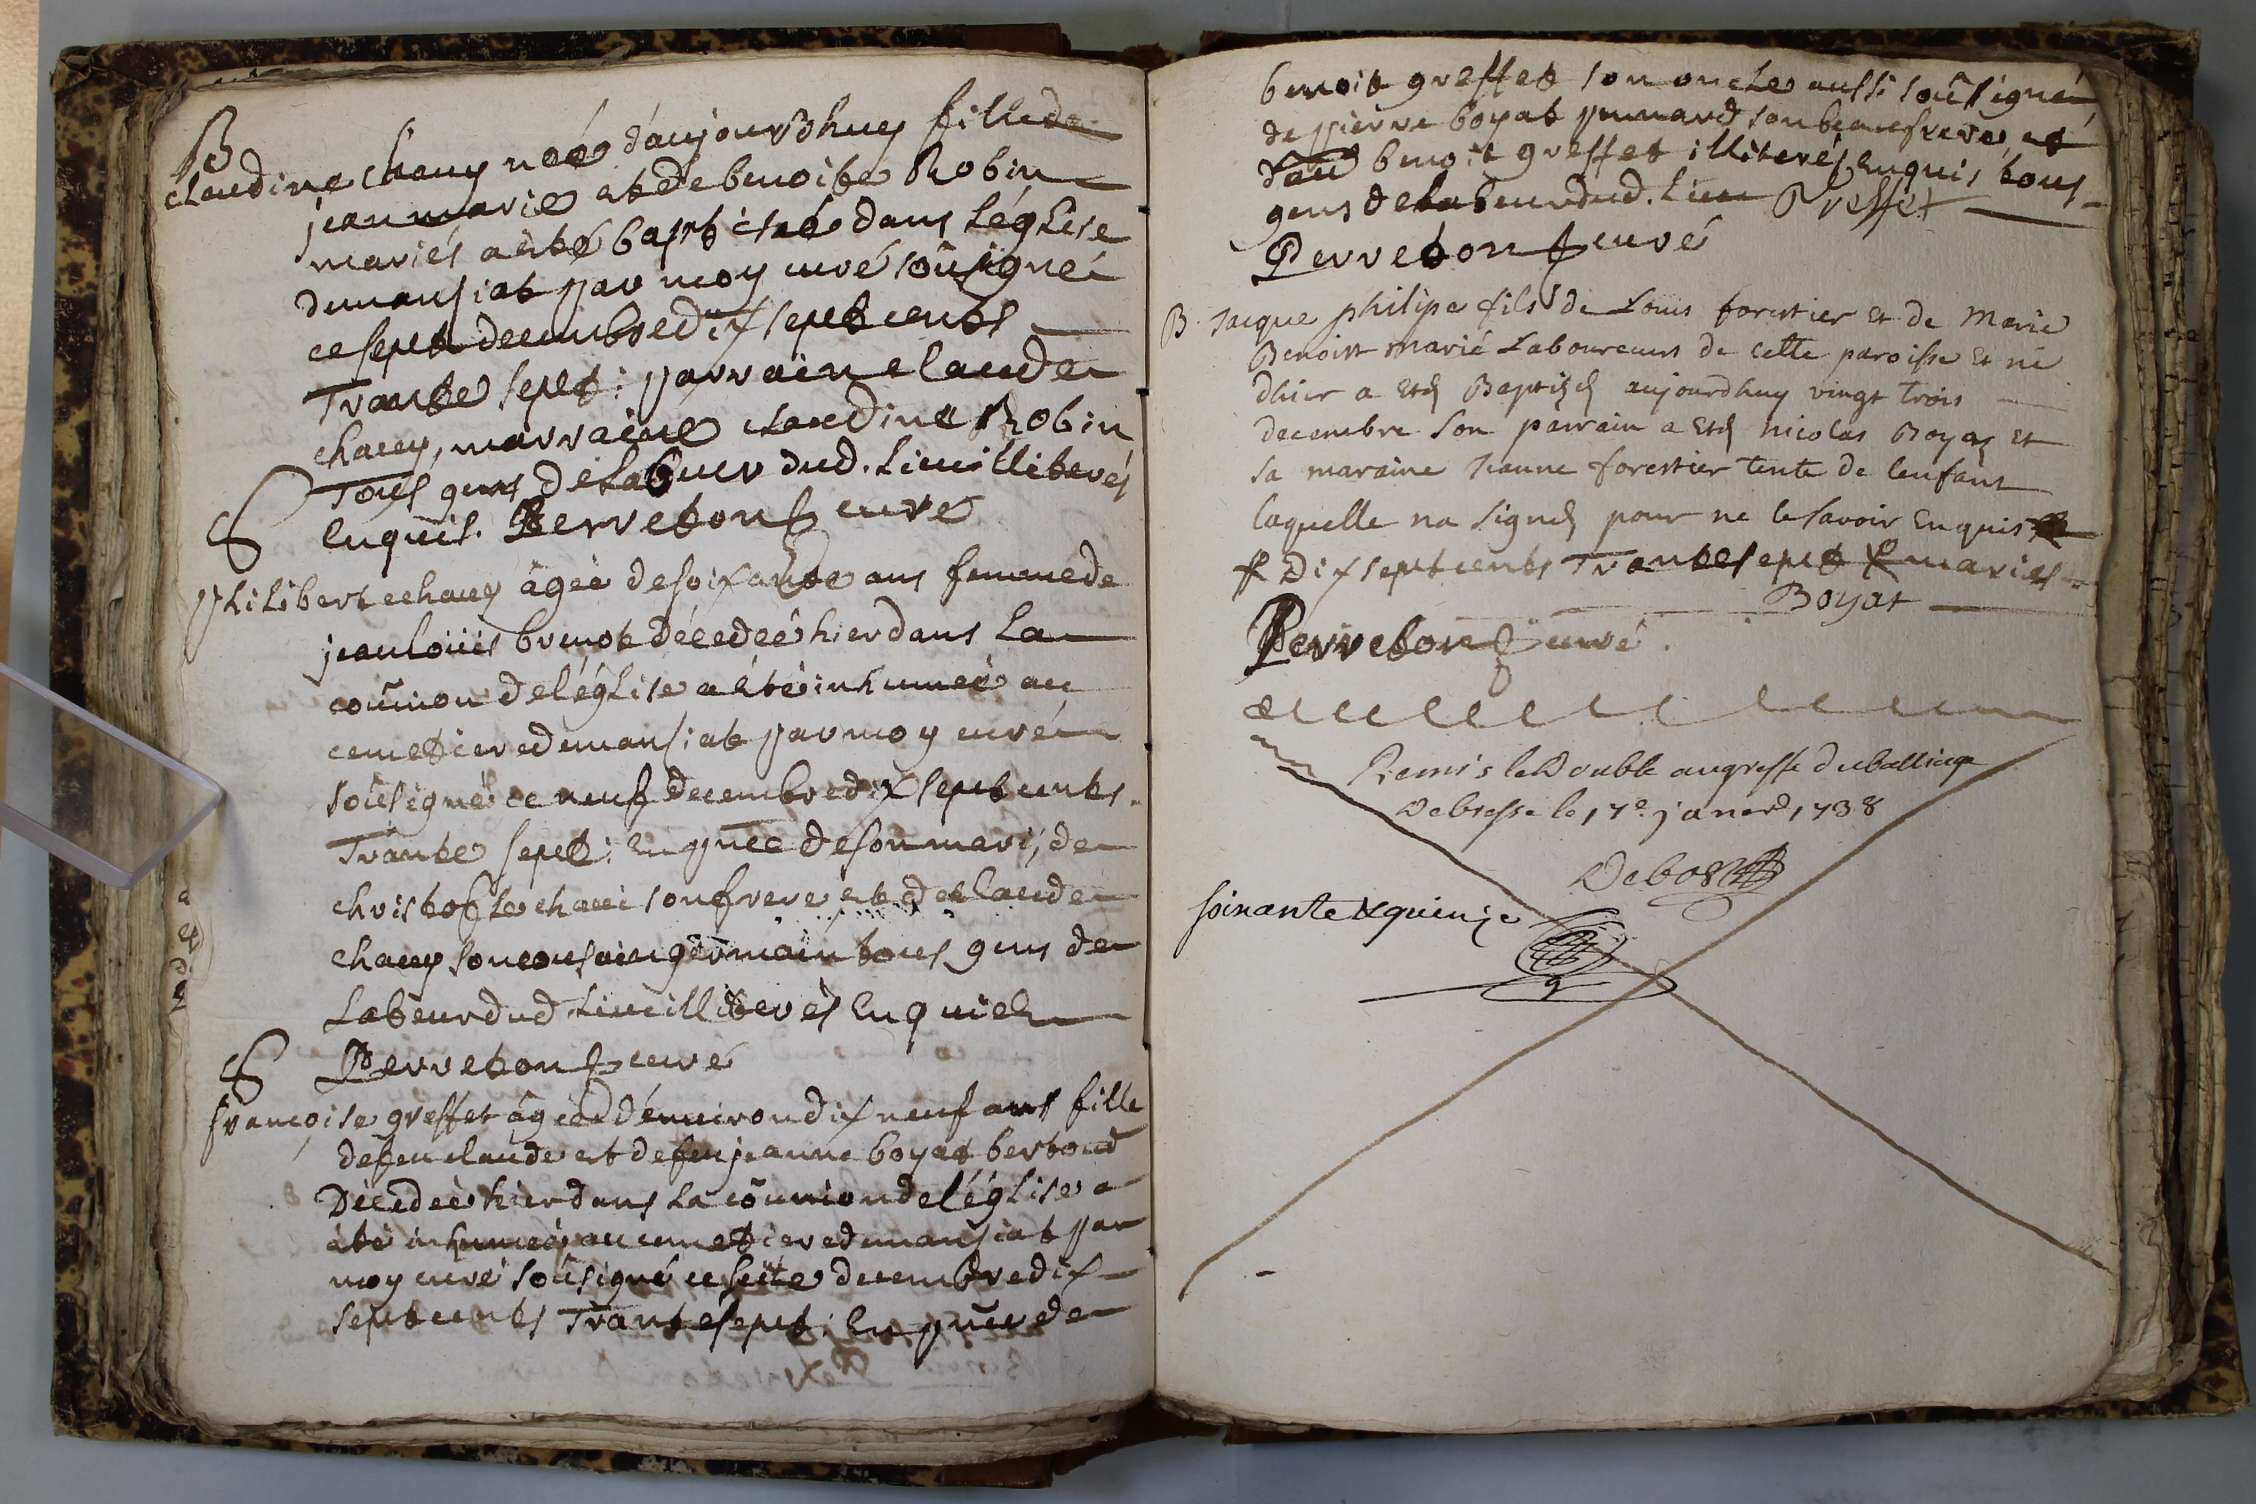 B
claudine chaney née d'aujourdhuy fille de
jean marie et de benoite Robin
mariés a êté baptisée dans l'église
de mansiat par moy curé soûsigné
ce sept decembre dix sept cents
Trante sept : parrain claude
chaney, marraine claudine Robin
Tous gens de labeur dud. lieu illiterés
Enquis. Perreton curé
S
philiberte chaney âgée de soixante ans femme de
jean loüis brenot décedeé hier dans la
com̃ion de l'église a êté inhumeé au
cemetiere de mansiat par moy curé
soûsigné ce neuf decembre dix sept cents
Trante sept : En pñce de son mari, de
christofle chanei son frere et de claude
chaney son cousain germain tous gens de
labeur dud. lieu illiterés Enquis
S Perreton curé
françoise greffet âgeé d'environ dix neuf ans fille
de feu claude et de feu jeanne boyat bertoud
Décedeé hier dans la com̃ion de l'église a
êté inhumeé au cemetiere de mansiat par
moy curé soûsigné ce seite decembre dix
sept cents Trante sept : En pñce de
benoit greffet son oncle aussi soûsigné
de pierre boyat son beaufrere, et
benoit greffet illiterés Enquis, tous
gens de labeur dud. lieu Greffet
Perreton curé
B. Jacque philipe fils de Louis forestier Et de Marie
Benoist marié Laboureurs de cette paroisse Et né
dhier a Eté Baptizé aujourdhuy vingt trois
decembre son parrain a Eté nicolas Boyat Et
sa maraine Jeanne forestier tente de lenfant
laquelle na signé pour ne le savoir Enquis
Dix sept cents Trante sept mariés
Boyat
Perreton curé.
Remis le Double au greffe du balliage
De bresse le 17e janer 1738
soixante & quinze